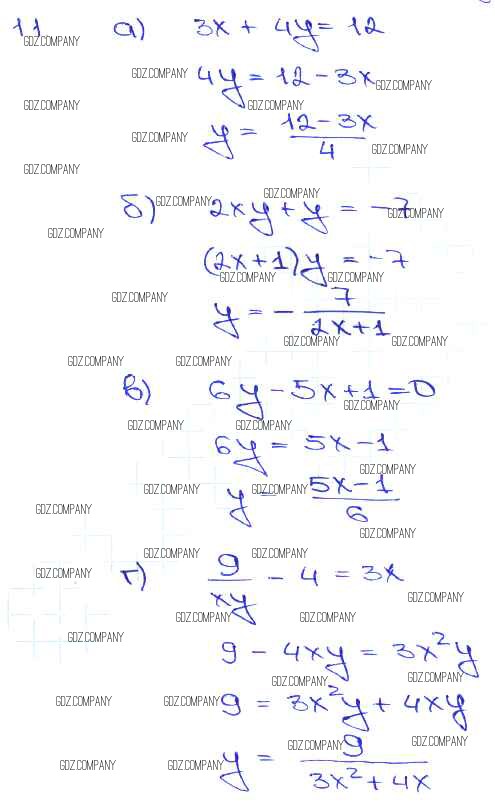 11 а) 3x + 4y = 12
GDZ.COMPANY
GDZ.COMPANY 4y = 12 - 3x GDZ.COMPANY
GDZ.COMPANY GDZ.COMPANY
GDZ.COMPANY y = \frac{12 - 3x}{4} GDZ.COMPANY
GDZ.COMPANY
б) GDZ.COMPANY 2xy + y = -7 GDZ.COMPANY GDZ.COMPANY
GDZ.COMPANY (2x+1)y = -7
GDZ.COMPANY GDZ.COMPANY
GDZ.COMPANY y = - \frac{7}{2x+1}
GDZ.COMPANY GDZ.COMPANY
GDZ.COMPANY GDZ.COMPANY
в) 6y - 5x + 1 = 0
GDZ.COMPANY
GDZ.COMPANY GDZ.COMPANY
6y = 5x - 1
GDZ.COMPANY
GDZ.COMPANY y = GDZ.COMPANY \frac{5x - 1}{6}
GDZ.COMPANY
GDZ.COMPANY
GDZ.COMPANY GDZ.COMPANY
GDZ.COMPANY г) \frac{9}{xy} - 4 = 3x
GDZ.COMPANY
GDZ.COMPANY GDZ.COMPANY
GDZ.COMPANY 9 - 4xy = 3x²y
GDZ.COMPANY GDZ.COMPANY
GDZ.COMPANY GDZ.COMPANY 9 = 3x²y + 4xy
GDZ.COMPANY GDZ.COMPANY
GDZ.COMPANY GDZ.COMPANY y = \frac{9}{3x² + 4x}